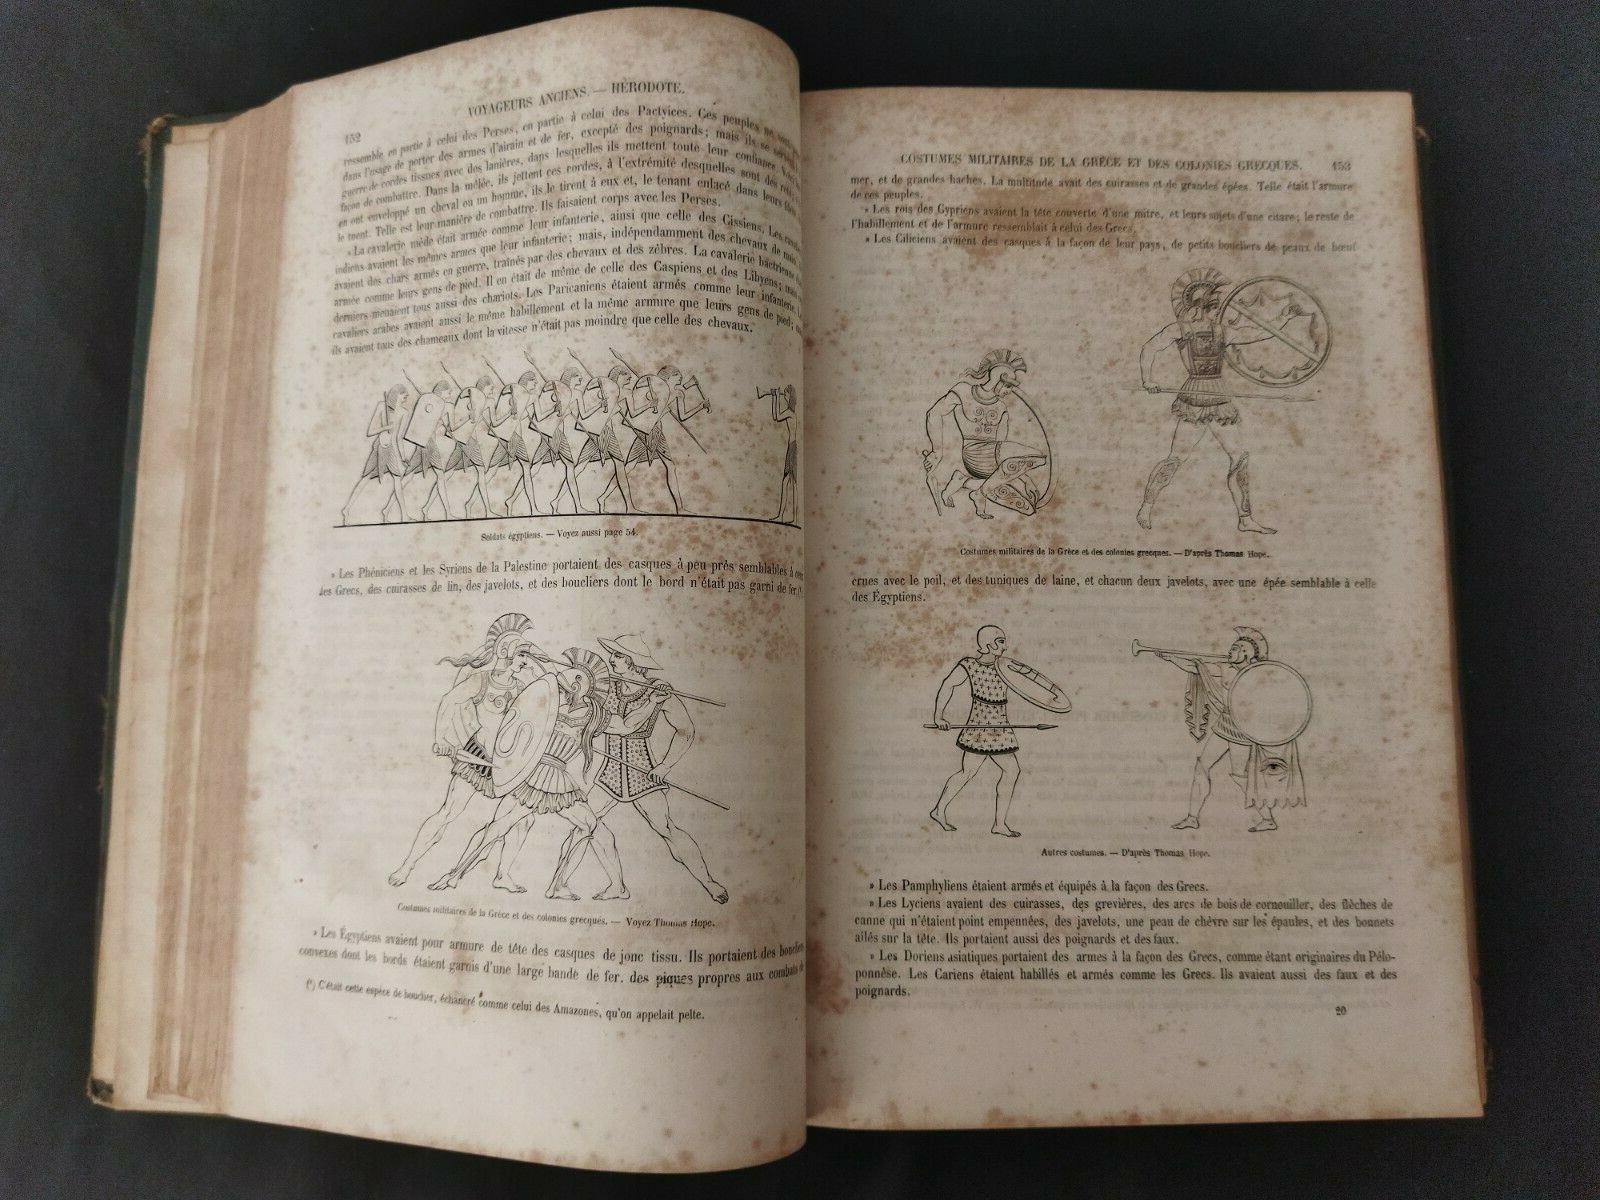 VOYAGEURS ANCIENS. — HÉRODOTE.
152
ressemble en partie à celui des Perses, en partie à celui des Pactyices. Ces peuples ne sont
dans l'usage de porter des armes d'airain et de fer, excepté des poignards; mais ils se servent
guerre de cordes tissues avec des lanières, dans lesquelles ils mettent toute leur confiance.
façon de combattre. Dans la mêlée, ils jettent ces cordes, à l'extrémité desquelles sont des
en ont enveloppé un cheval ou un homme, ils le tirent à eux et, le tenant enlacé dans leurs
le tuent. Telle est leur manière de combattre. Ils faisaient corps avec les Perses.
» La cavalerie mède était armée comme leur infanterie, ainsi que celle des Cissiens. Les
indiens avaient les mêmes armes que leur infanterie; mais, indépendamment des chevaux de main,
avaient des chars armés en guerre, traînés par des chevaux et des zèbres. La cavalerie bactrienne
armée comme leurs gens de pied. Il en était de même de celle des Caspiens et des Libyens;
derniers menaient tous aussi des chariots. Les Paricaniens étaient armés comme leur infanterie.
cavaliers arabes avaient aussi le même habillement et la même armure que leurs gens de pied;
ils avaient tous des chameaux dont la vitesse n'était pas moindre que celle des chevaux.
Soldats égyptiens. — Voyez aussi page 54.
» Les Phéniciens et les Syriens de la Palestine portaient des casques à peu près semblables à
des Grecs, des cuirasses de lin, des javelots, et des boucliers dont le bord n'était pas garni de fer
Costumes militaires de la Grèce et des colonies grecques. — Voyez Thomas Hope.
» Les Égyptiens avaient pour armure de tête des casques de jonc tissu. Ils portaient des boucliers
convexes dont les bords étaient garnis d'une large bande de fer, des piques propres aux combats de
(¹) C'était cette espèce de bouclier, échancré comme celui des Amazones, qu'on appelait pelte.
COSTUMES MILITAIRES DE LA GRÈCE ET DES COLONIES GRECQUES. 153
mer, et de grandes haches. La multitude avait des cuirasses et de grandes épées. Telle était l'armure
de ces peuples.
» Les rois des Cypriens avaient la tête couverte d'une mitre, et leurs sujets d'une citare; le reste de
l'habillement et de l'armure ressemblait à celui des Grecs.
» Les Ciliciens avaient des casques à la façon de leur pays, de petits boucliers de peaux de bœuf
Costumes militaires de la Grèce et des colonies grecques. — D'après Thomas Hope.
crues avec le poil, et des tuniques de laine, et chacun deux javelots, avec une épée semblable à celle
des Égyptiens.
Autres costumes. — D'après Thomas Hope.
» Les Pamphyliens étaient armés et équipés à la façon des Grecs.
» Les Lyciens avaient des cuirasses, des grevières, des arcs de bois de cornouiller, des flèches de
canne qui n'étaient point empennées, des javelots, une peau de chèvre sur les épaules, et des bonnets
ailés sur la tête. Ils portaient aussi des poignards et des faux.
» Les Doriens asiatiques portaient des armes à la façon des Grecs, comme étant originaires du Pélo-
ponnèse. Les Cariens étaient habillés et armés comme les Grecs. Ils avaient aussi des faux et des
poignards.
20